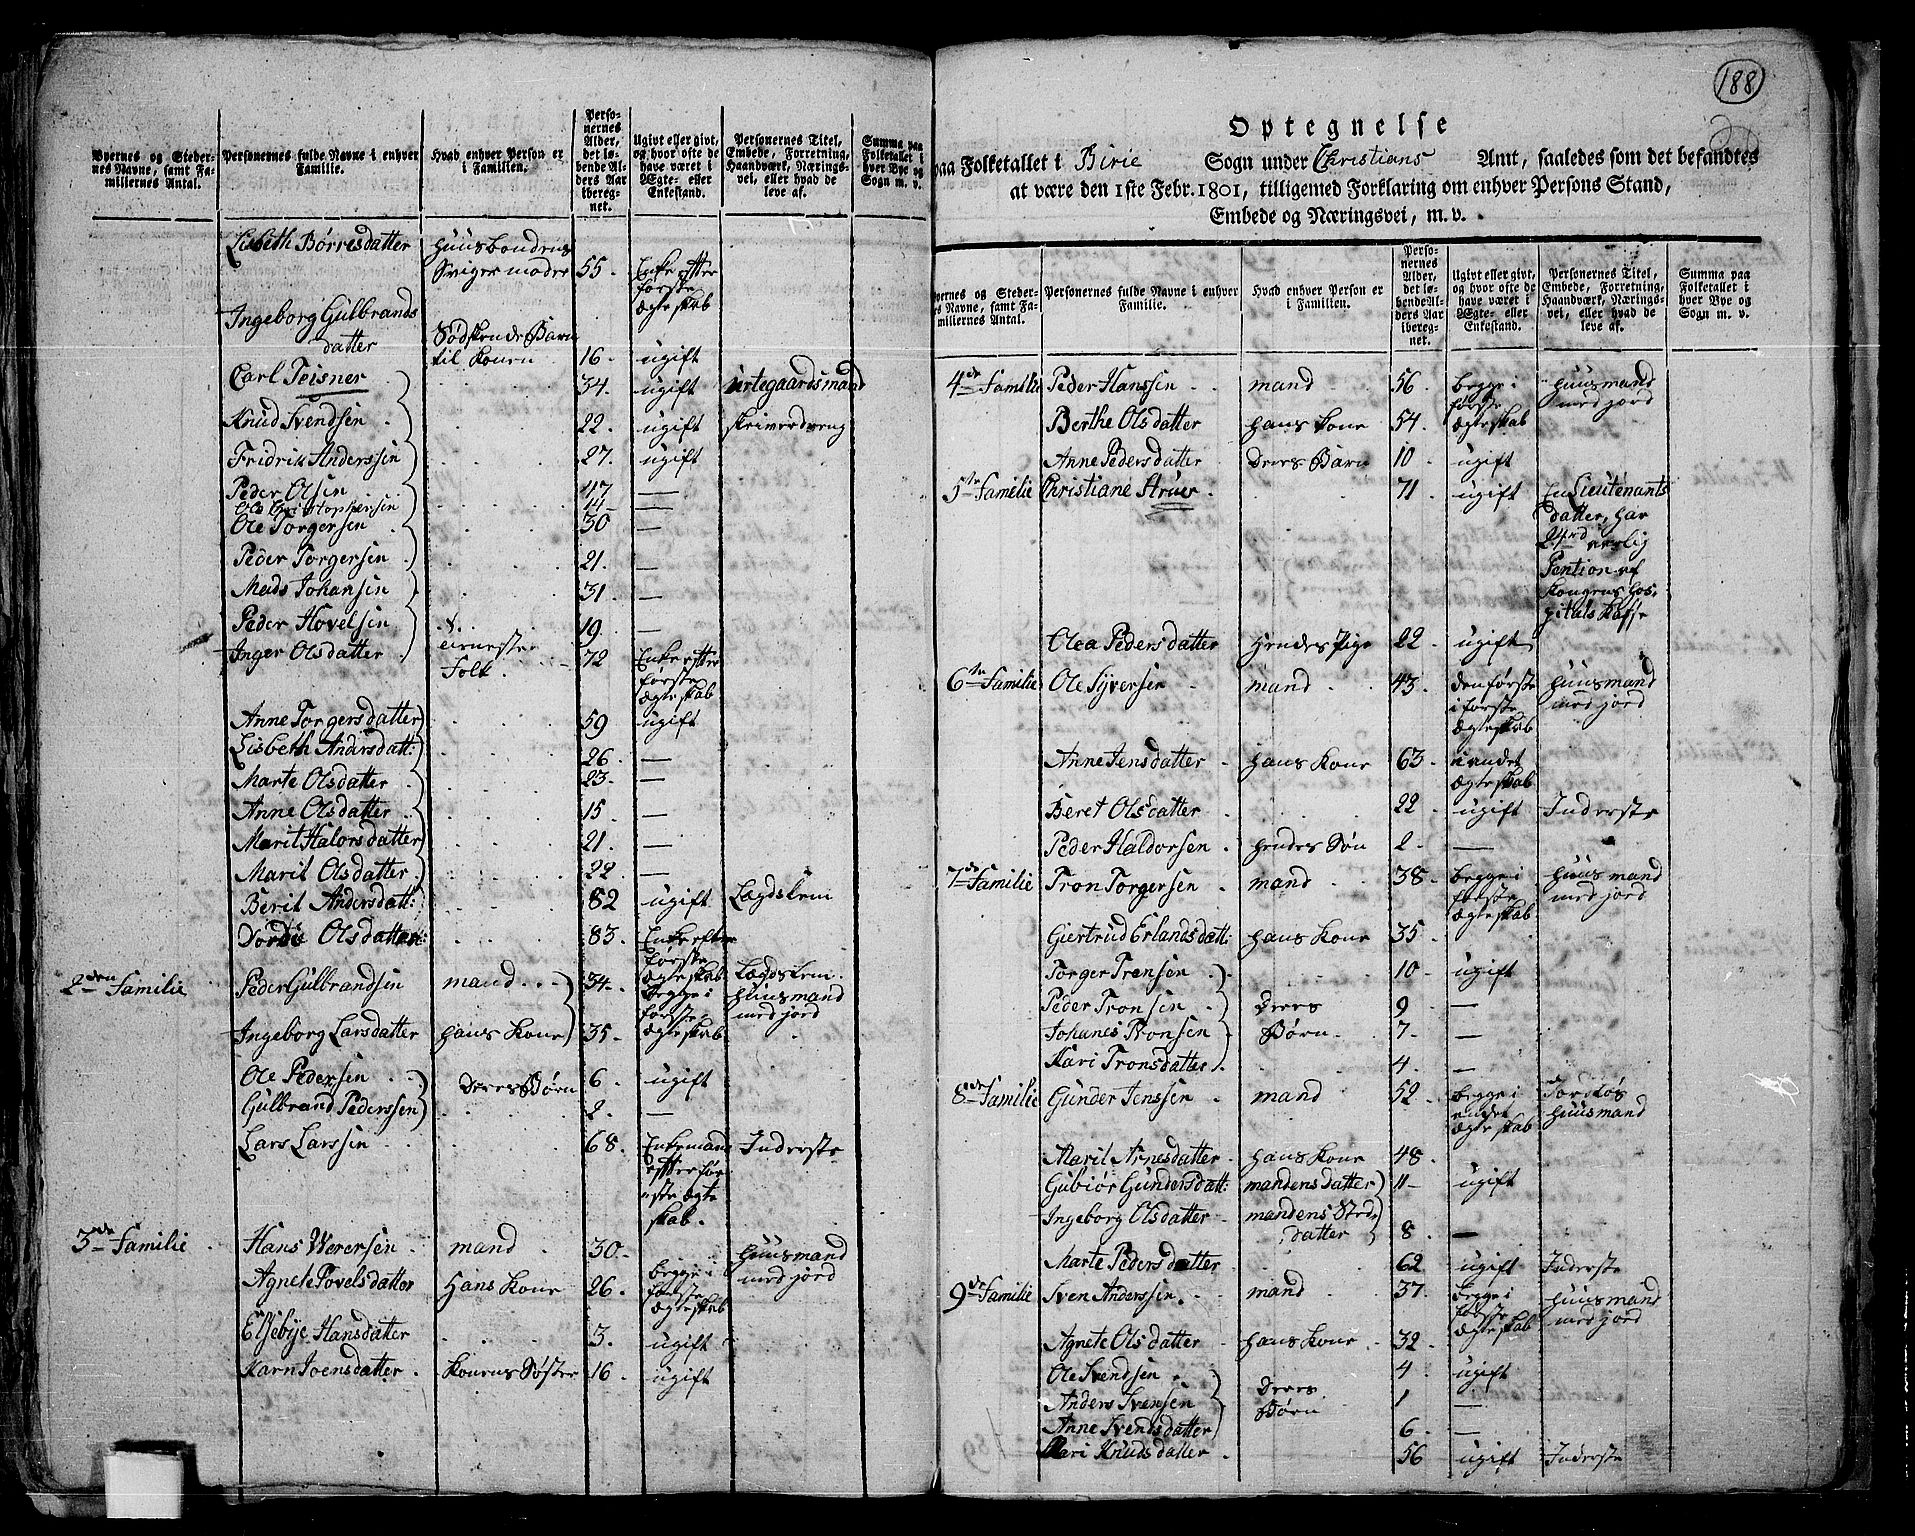 Byernes og Steder- Personernes fulde Navne i enhver Hvad enhver Person er Perso- Ugivt eller givt, Personernes Titel, Summa paa
nes Navne, samt Fa- Familie. i Familien. nernes og hvor ofte de Embede, Forretning, Folketallet i
milliernes Antal. Alder, have været i Haandværk, Nærings- hver Bye og
det lø- Ægte- eller vei, eller hvad de Sogn m. v.
bende Al- Enkestand. leve af.
ders Aar
ibereg-
net.
Lisbeth Börresdatter huusbondens
Sviger moder 55. Enke efter
første
ægteskab
Ingeborg Gulbrands
datter Södskende Barn
til konen 16. ugift
Carl Teisner 34. ugift urtegaardsmand
Knud Svendsen 22. ugift skriverdreng
Fridrik Anderssen 27. ugift
Peder Olsen 47 —
Ole Christophersen 14 —
Ole Torgersen 30 —
Peder Torgersen 21. —
Mads Johansen 31. —
Peder Hovelsen 19. —
Inger Olsdatter tienester
Folk 72 Enke efter
første
ægteskab
Anne Torgersdatter 59 ugift
Lisbeth Andersdatt: 26 —
Marte Olsdatter 23. —
Anne Olsdatter 15 —
Marit Halorsdatter 21. —
Marit Olsdatter 22. —
Berit Andersdatt: 82 ugift Lægdslem
Olsdatter 83. Enke efter
første
ægteskab Lægdslem
2den Familie Peder Gulbrandsen mand 34. begge i huusmand
første med jord
Ingeborg Larsdatter hans kone 35. ægteskab
Ole Pedersen deres Börn 6. ugift
Gulbrand Pederssen 2. —
Lars Larssen 68. Enkemand Inderste
efter før
ste ægte
skab.
3die Familie Hans Wersen mand 30. huusmand
begge i med jord
Agnete Povelsdatter Hans kone 26. første
ægteskab
Elsebye Hansdatter 3. ugift
Karn Joensdatter konens Söster 16 ugift
188
Optegnelse
paa Folketallet i Birie Sogn under Christians Amt, saaledes som det befandtes
at være den 1ste Febr. 1801, tilligemed Forklaring om enhver Persons Stand,
Embede og Næringsvei, m. v.
Byernes og Steder- Personernes fulde Navne i enhver Hvad enhver Person er Perso- Ugivt eller givt, Personernes Titel, Summa paa
nes Navne, samt Fa- Familie. i Familien. nernes og hvor ofte de Embede, Forretning, Folketallet i
milliernes Antal. Alder, have været i Haandværk, Nærings- hver Bye og
det lø- Ægte- eller vei, eller hvad de Sogn m. v.
bende Al- Enkestand. leve af.
ders Aar
ibereg-
net.
4de Familie Peder Hanssen mand 56 begge i huusmand
første med jord
Berthe Olsdatter hans kone 54. ægteskab
Anne Pedersdatter deres Barn 10 ugift
5te Familie Christiane Struer 71 ugift En Lieutenants
datter, har
aarlig
Pention af
Kongens hos-
pitals Kasse
Olea Pedersdatter hendes Pige 22 ugift
6te Familie Ole Syversen mand 43. den første huusmand
i første med jord
ægteskab
Anne Jensdatter hans kone 63. i andet
ægteskab
Beret Olsdatter 22 ugift Inderste
Peder Haldorsen hendes Sön 2 —
7de Familie Tron Torgersen mand 38 begge i huusmand
første med jord
ægteskab
Giertrud Erlandsdatt: hans kone 35
Torger Tronsen 10 ugift
Peder Tronsen deres 9 —
Johanes Tronsen Börn 7 —
Kari Tronsdatter 4 —
8de Familie Gunder Jenssen mand 52 begge i Jordlös
andet huusmand
ægteskab
Marit Arnesdatter hans kone 48
Gubiör Gundersdatt: mandens datter 11 ugift
Ingeborg Olsdatter mandens Sted
datter 8 —
Marte Pedersdatter 62 ugift Inderste
9de Familie Sven Anderssen mand 37 begge i huusmand
første med jord
ægteskab
Agnete Olsdatter hans kone 32
Ole Svendsen deres 4 ugift
Anders Svensen Börn 1 —
Anne Svendsdatter 6 —
Kari Knudsdatter 56 ugift Inderste
189